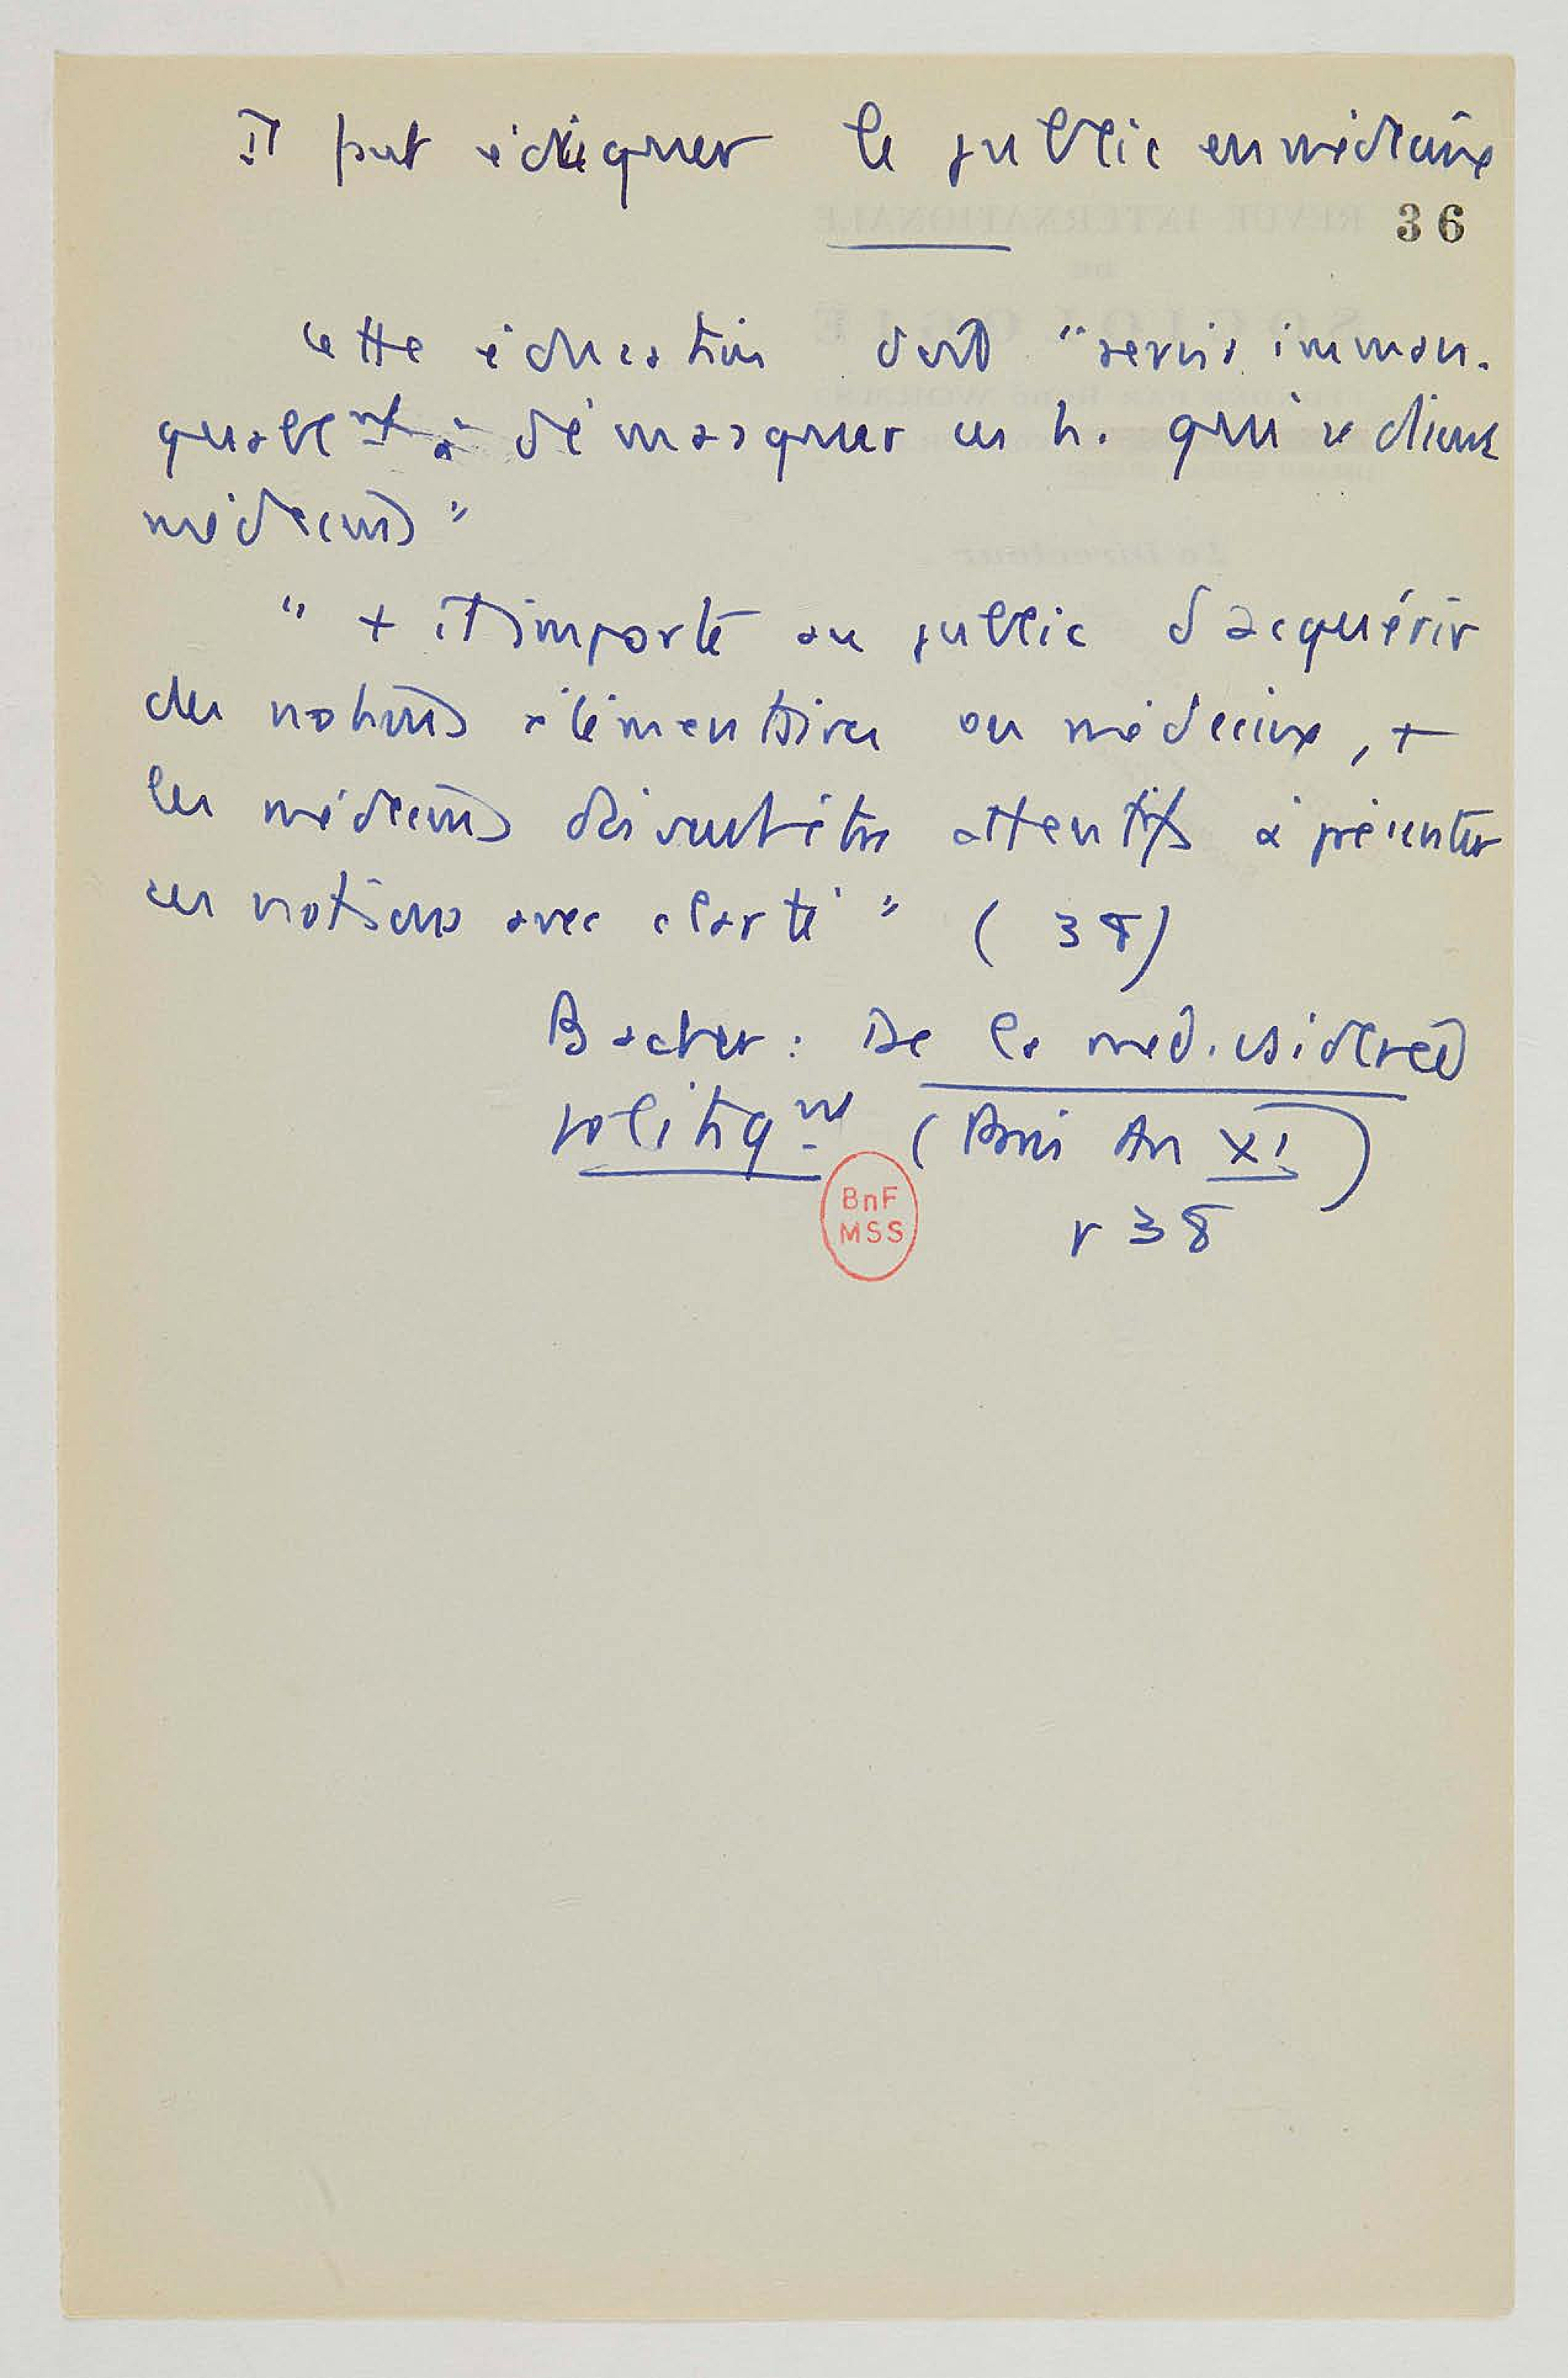 Il faut éduquer le public en médecine
36
Cette éducation doit "servir imman-
quablemt à démasquer ces h. qui se disent
médecins"
" + il importe au public d'acquérir
des notions élémentaires en médecine, +
les médecins doivent être attentifs à présenter
ces notions avec clarté" (38)
Bacher : De la med. considérée
politiqmt (Paris An XI)
p 38
BnF
MSS
REVUE INTERNATIONALE
DE
SOCIOLOGIE
Le Directeur